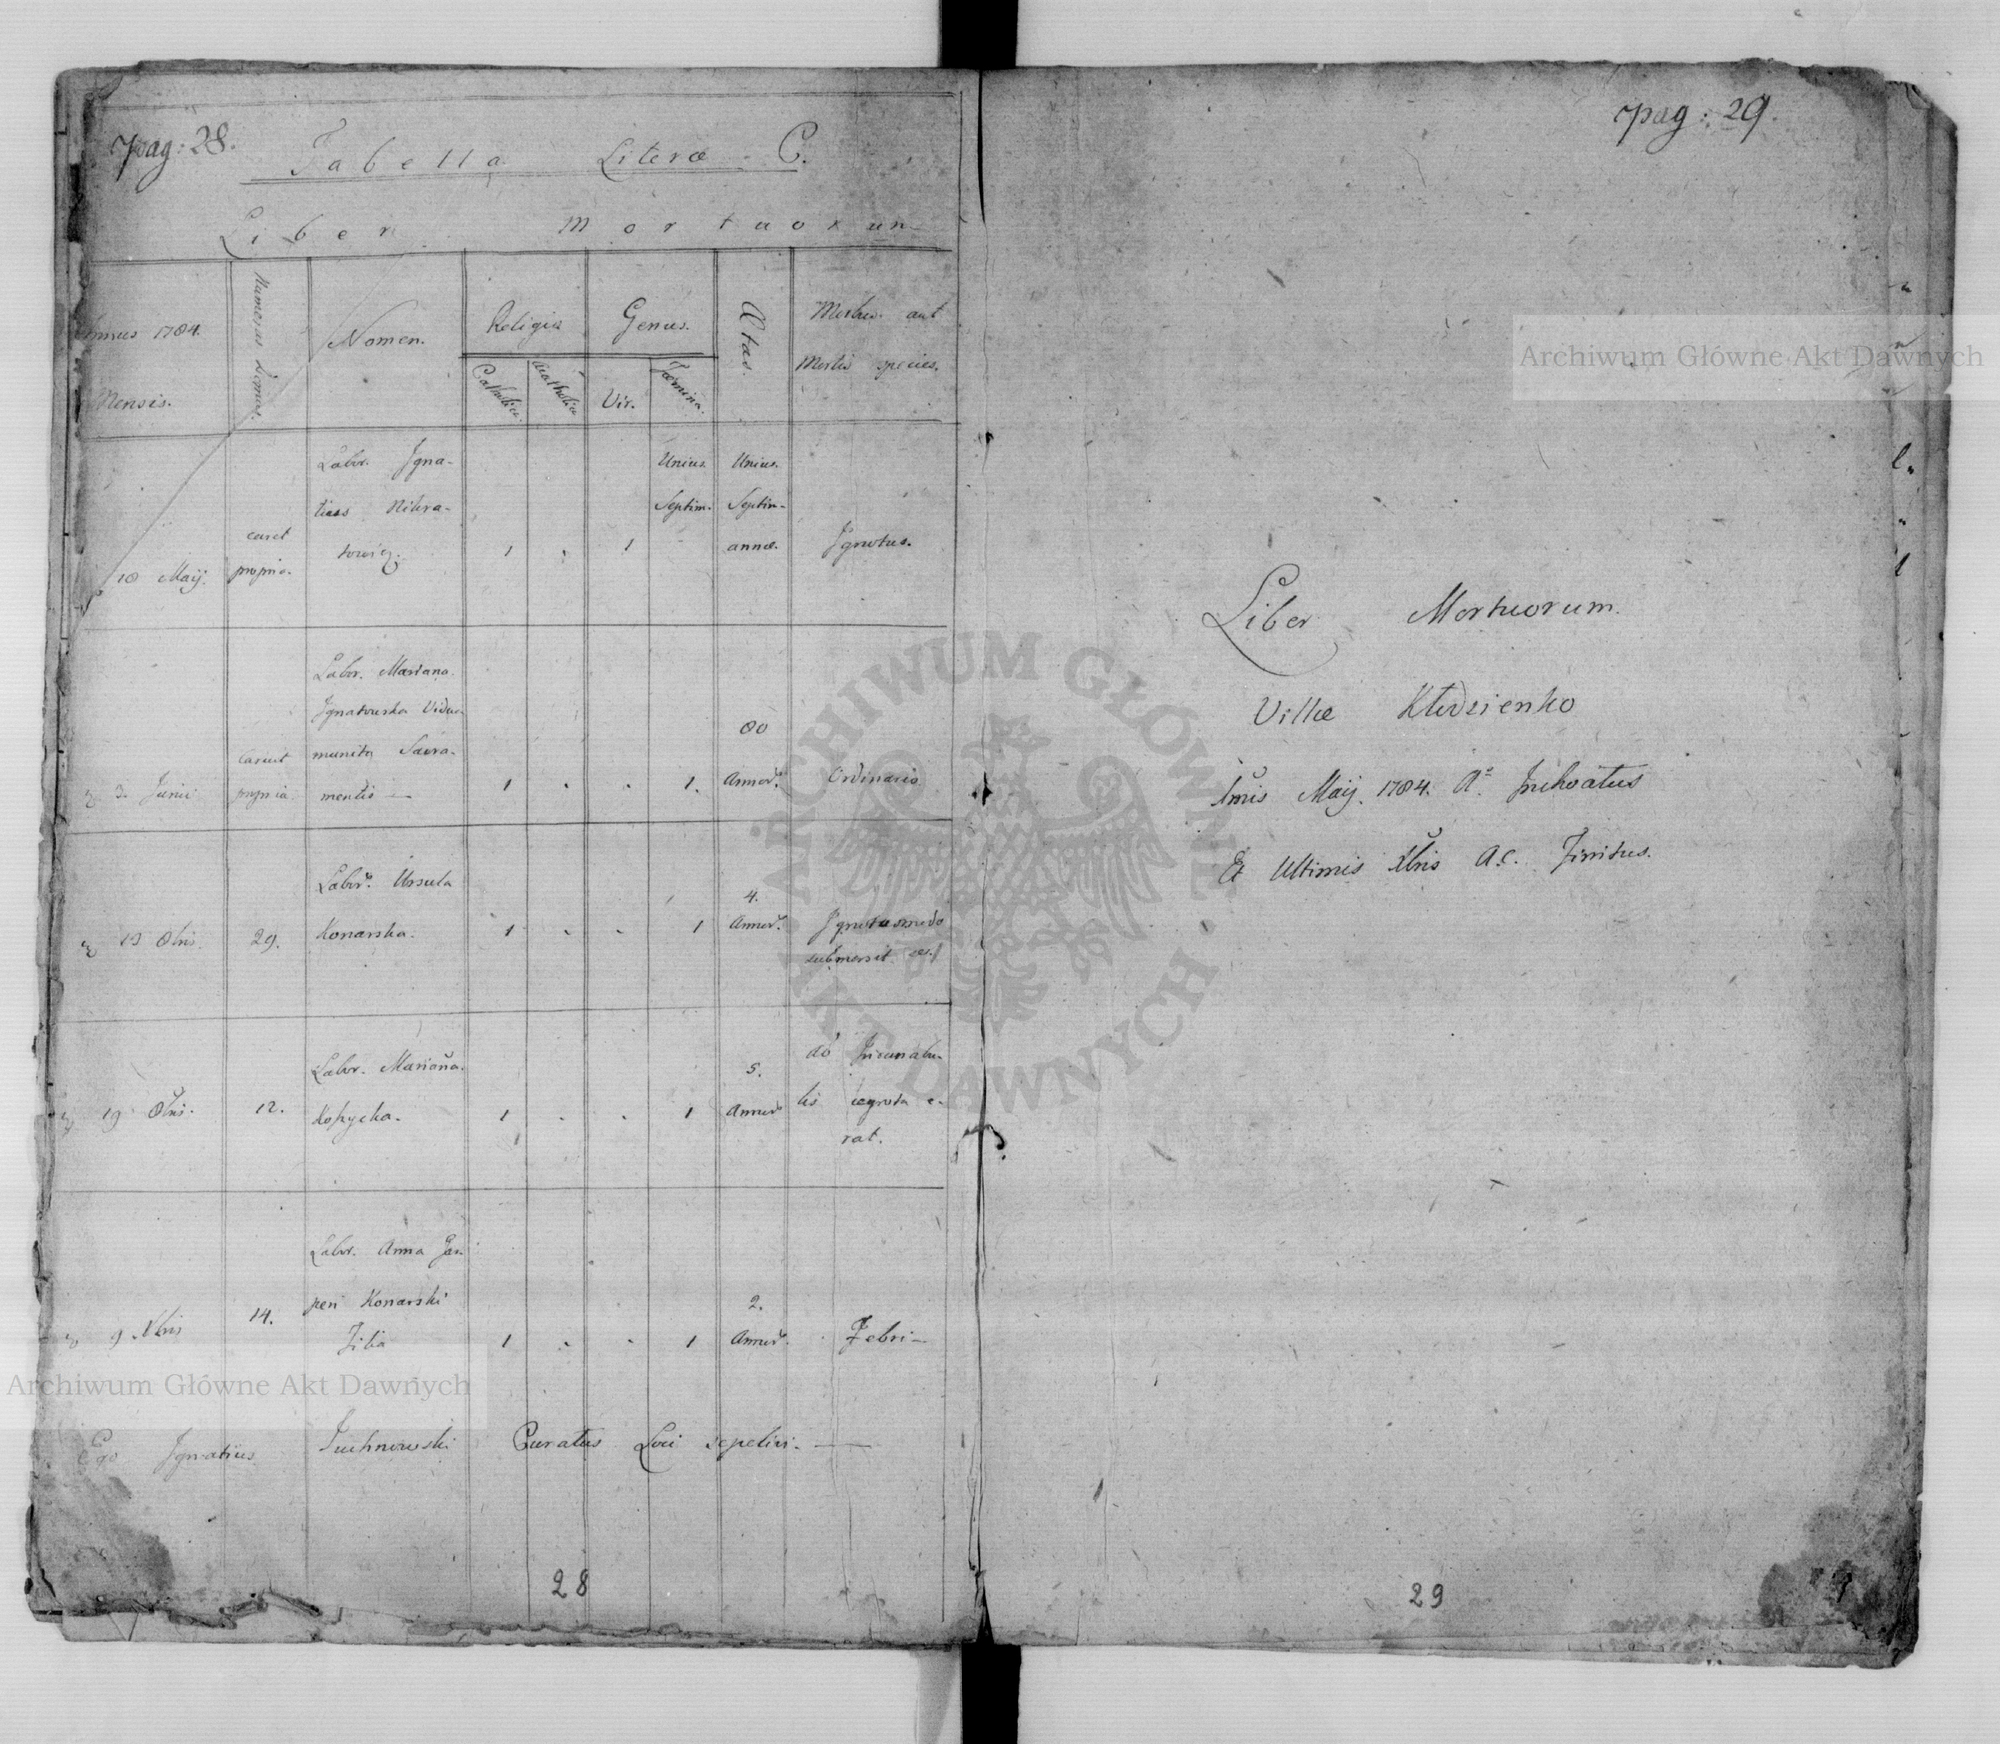 pag: 28.
Tabella Literæ C.
Liber Mortuorum
Annus 1784.
Mensis.
Numerus Domus.
Nomen.
Religio
Catholica.
Acatholica
Genus.
Vir.
Fæmina.
Ætas.
Morbus aut
Mortis species.
18 Maij.
caret
propria.
Labor. Igna-
tius Nikra-
towicz.
1 . 1
Unius.
Septim.
Unius.
Septim-
annæ.
Ignotus.
3. Junii
Caruit
propria.
Labor. Mariana
Ignatowska Vidua
munita Sacra-
mentis
1 . . 1.
80
Annor.
Ordinario
19 8bris.
29.
Labor. Ursula
Konarska.
1 . . 1
4.
Annor.
submersit
19 8bris.
12.
Labor. Mariana.
Kopycka.
1 . . 1
5.
Annor.
ab Incunabu-
lis ægrota e-
rat.
9 Xbris
14.
Labor. Anna Gas-
peri Konarski
Filia
1 . . 1
2.
Annor.
Febri
Ego Ignatius Juchnowski Curatus Loci sepelivi.
28
pag: 29.
Liber Mortuorum.
Villæ Kłodzienko
1mis Maij. 1784. Aº Inchoatus
Et Ultimis Xbris A.C. Finitus.
29
Archiwum Główne Akt Dawnych
Archiwum Główne Akt Dawnych
ARCHIWUM GŁÓWNE AKT DAWNYCH